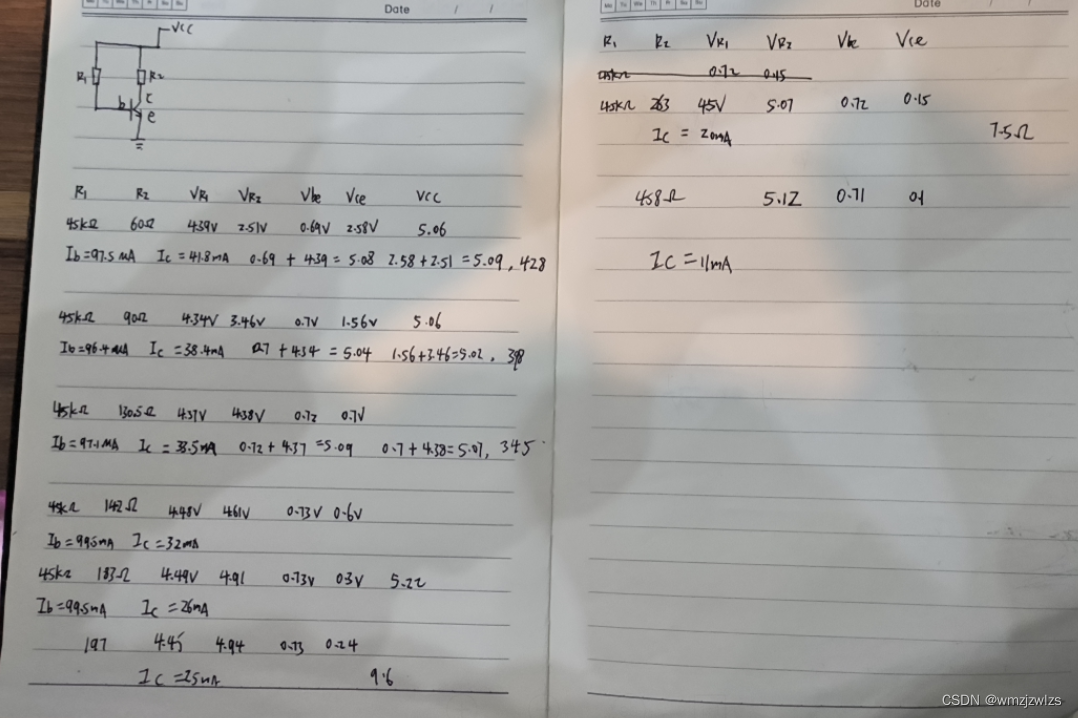 Date / /
VCC
R1 R2
b c
e
R1 R2 VR1 VR2 Vbe Vce VCC
45kΩ 60Ω 4.39V 2.51V 0.69V 2.58V 5.06
Ib=97.5MA Ic=41.8mA 0.69+4.39=5.08 2.58+2.51=5.09, 428
45kΩ 90Ω 4.34V 3.46V 0.7V 1.56V 5.06
Ib=96.4MA Ic=38.4mA 0.7+4.34=5.04 1.56+3.46=5.02, 398
45kΩ 130.5Ω 4.37V 4.38V 0.72 0.7V
Ib=97.1MA Ic=33.5mA 0.72+4.37=5.09 0.7+4.38=5.07, 345
45kΩ 142Ω 4.48V 4.61V 0.73V 0.6V
Ib=99.5mA Ic=32mA
45kΩ 183Ω 4.49V 4.91 0.73V 0.3V 5.22
Ib=99.5mA Ic=26mA
197 4.45 4.94 0.73 0.24
Ic=25mA 9.6
Date / /
R1 R2 VR1 VR2 Vbe Vce
0.72 0.15
45kΩ 263 45V 5.07 0.72 0.15
Ic=20mA 7.5Ω
458Ω 5.12 0.71 0.1
Ic=11mA
CSDN @wmzjzwlzs